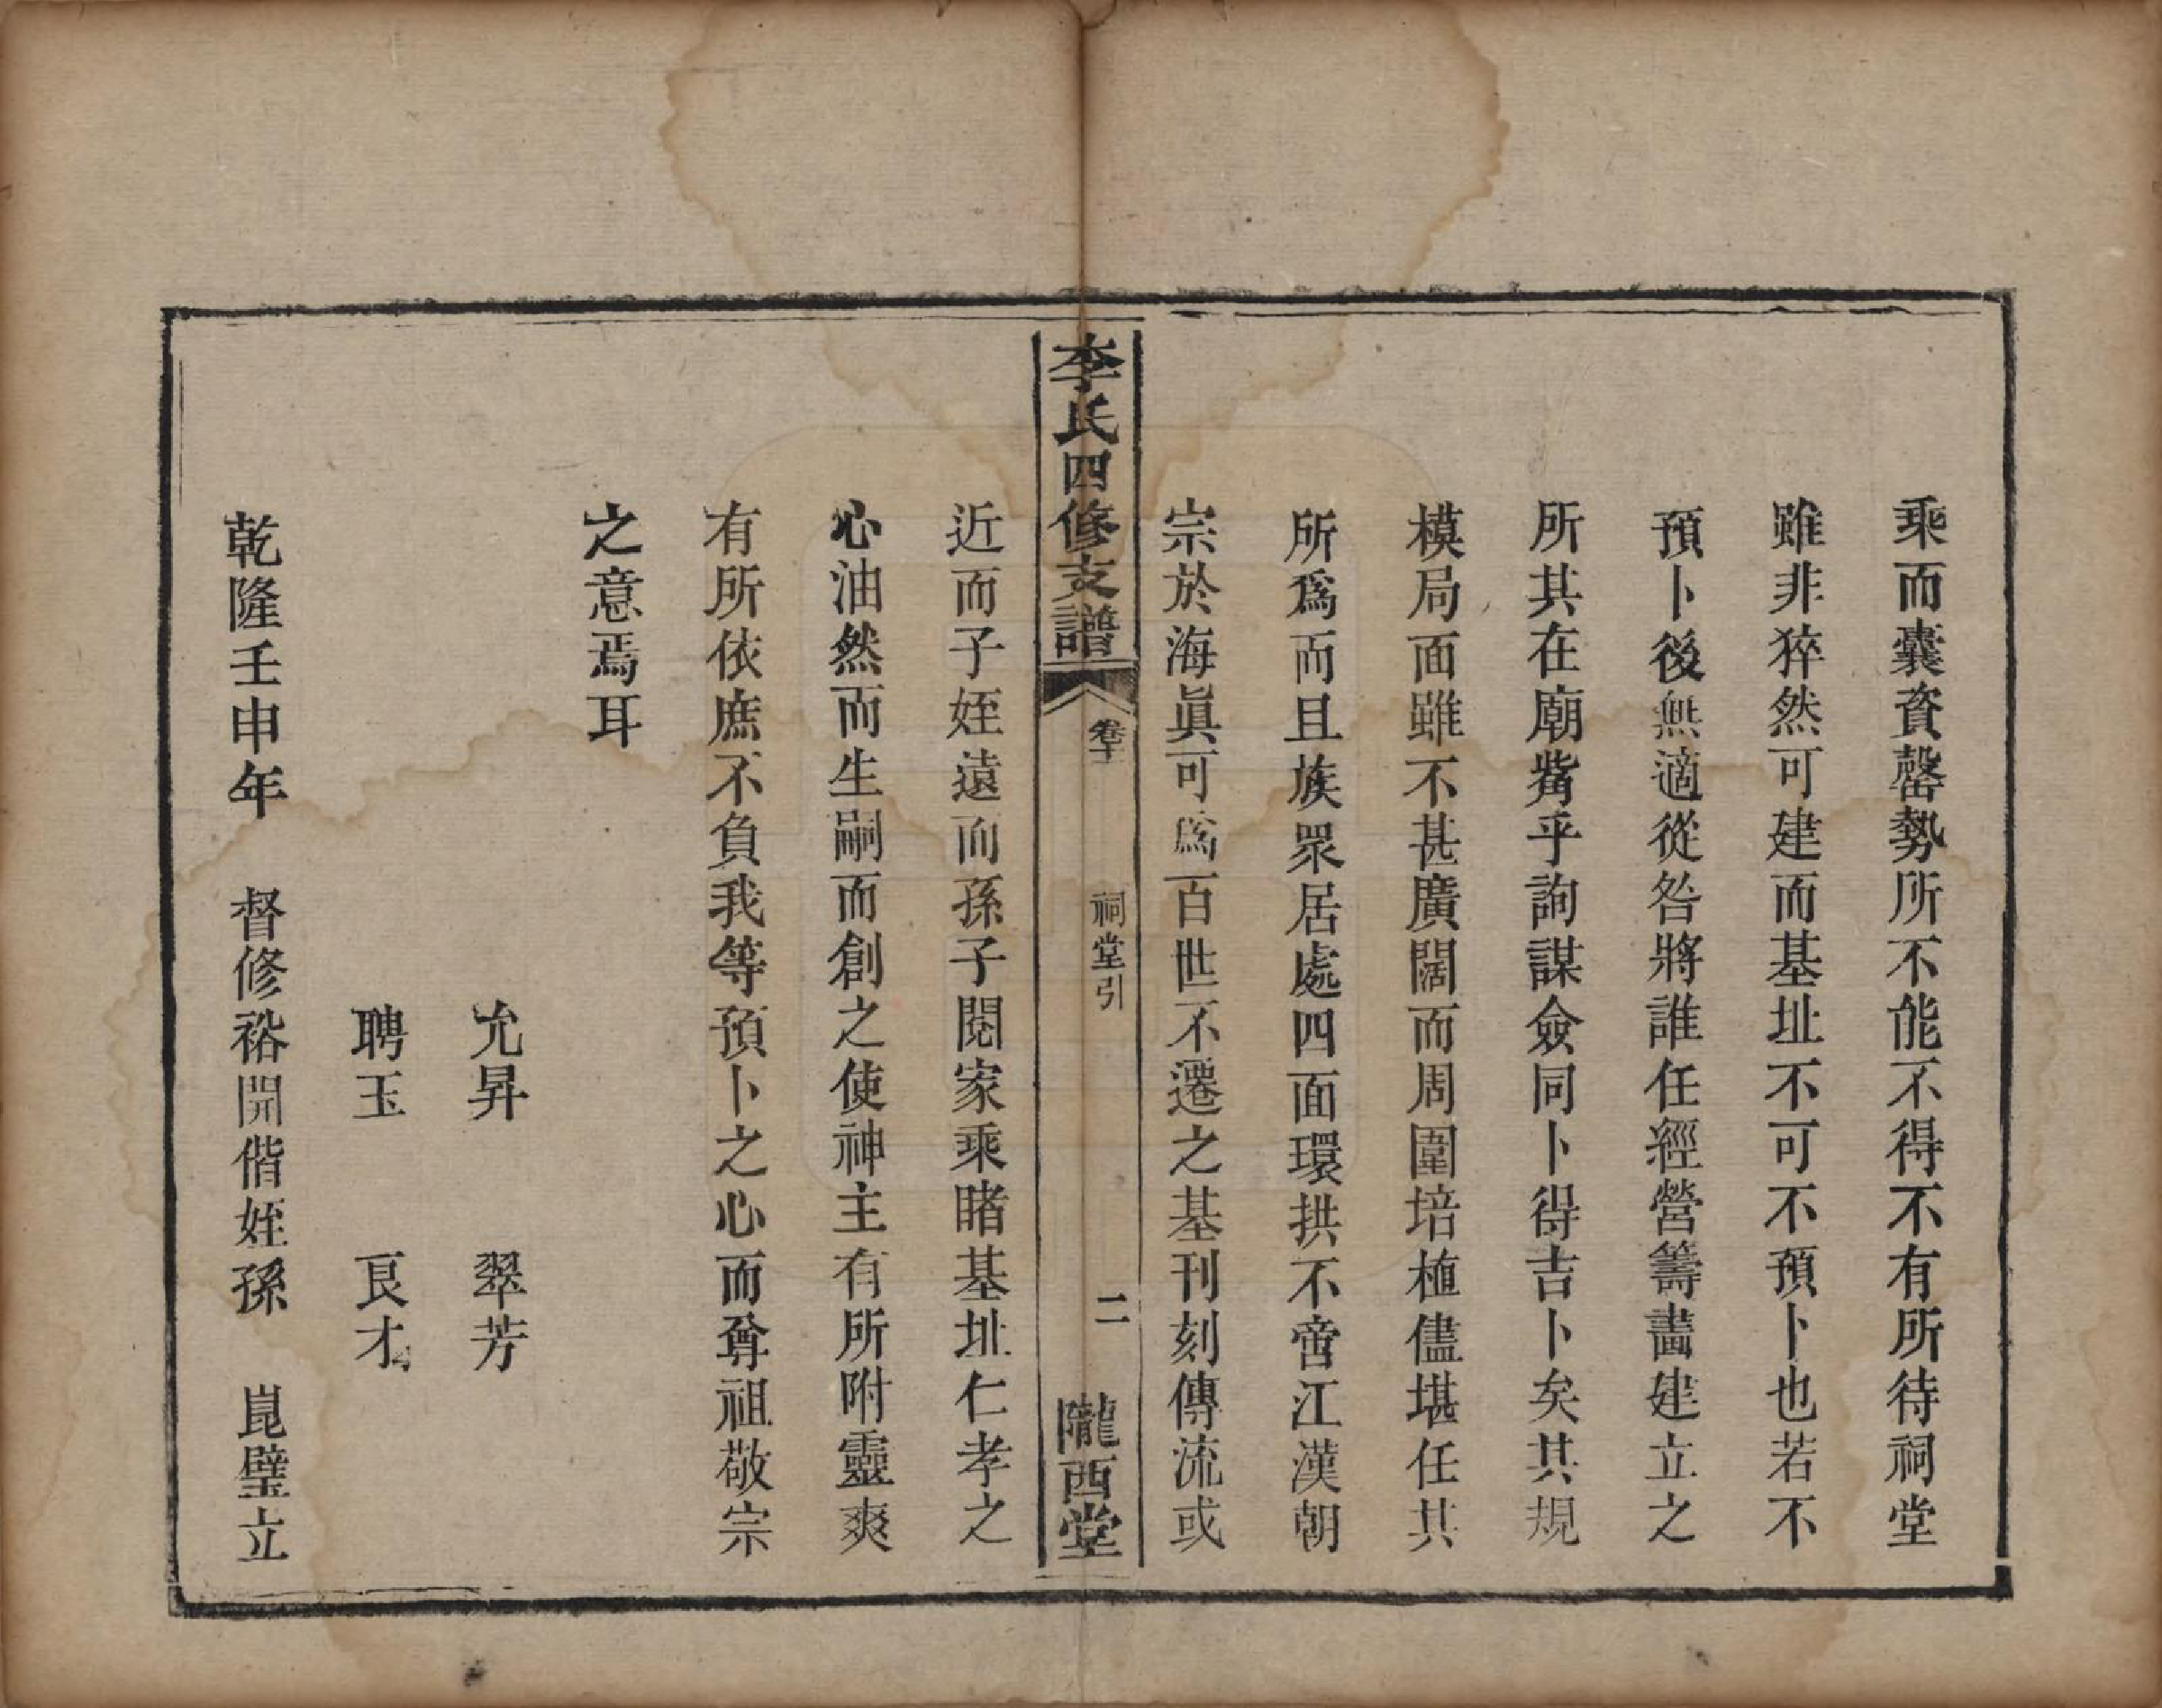 乘而囊資罄勢所不能不得不有所待祠堂
雖非猝然可建而基址不可不預卜也若不
預卜後無適從咎將誰任經營籌畫建立之
所其在廟觜乎詢謀僉同卜得吉卜矣其規
模局面雖不甚廣闊而周圍培植儘堪任其
所爲而且族眾居處四面環拱不啻江漢朝
宗於海眞可爲百世不遷之基刊刻傳流或
李氏四修支譜
卷十
祠堂引
二
隴西堂
近而子姪遠而孫子閱家乘睹基址仁孝之
心油然而生嗣而創之使神主有所附靈爽
有所依庶不負我等預卜之心而尊祖敬宗
之意焉耳
允昇 翠芳
聘玉 良才
乾隆壬申年 督修裕開偕姪孫 崑璧立